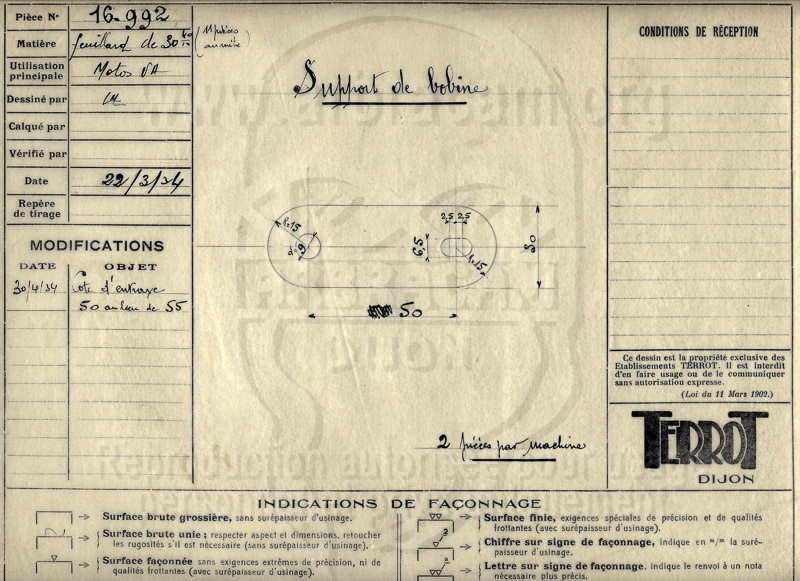 Pièce N° 16.992
Matière feuillard de 30 (11 pièces
au mètre
Utilisation
principale Motos VA
Dessiné par
Calqué par
Vérifié par
Date 22/3/34
Repère
de tirage
MODIFICATIONS
DATE OBJET
30/4/34 Cote d'entraxe
50 au lieu de 55
Support de bobine
r.15
d=9
2,5 2,5
6,5
r.15
30
50
2 pièces par machine
CONDITIONS DE RÉCEPTION
Ce dessin est la propriété exclusive des
Etablissements TERROT. Il est interdit
d'en faire usage ou de le communiquer
sans autorisation expresse.
(Loi du 11 Mars 1902.)
TERROT
DIJON
INDICATIONS DE FAÇONNAGE
Surface brute grossière, sans surépaisseur d'usinage.
Surface brute unie ; respecter aspect et dimensions, retoucher
les rugosités s'il est nécessaire (sans surépaisseur d'usinage).
Surface façonnée sans exigences extrêmes de précision, ni de
qualités frottantes (avec surépaisseur d'usinage).
Surface finie, exigences spéciales de précision et de qualités
frottantes (avec surépaisseur d'usinage).
Chiffre sur signe de façonnage, indique en m/m la suré-
paisseur d'usinage.
Lettre sur signe de façonnage. indique le renvoi à un nota
nécessaire plus précis.